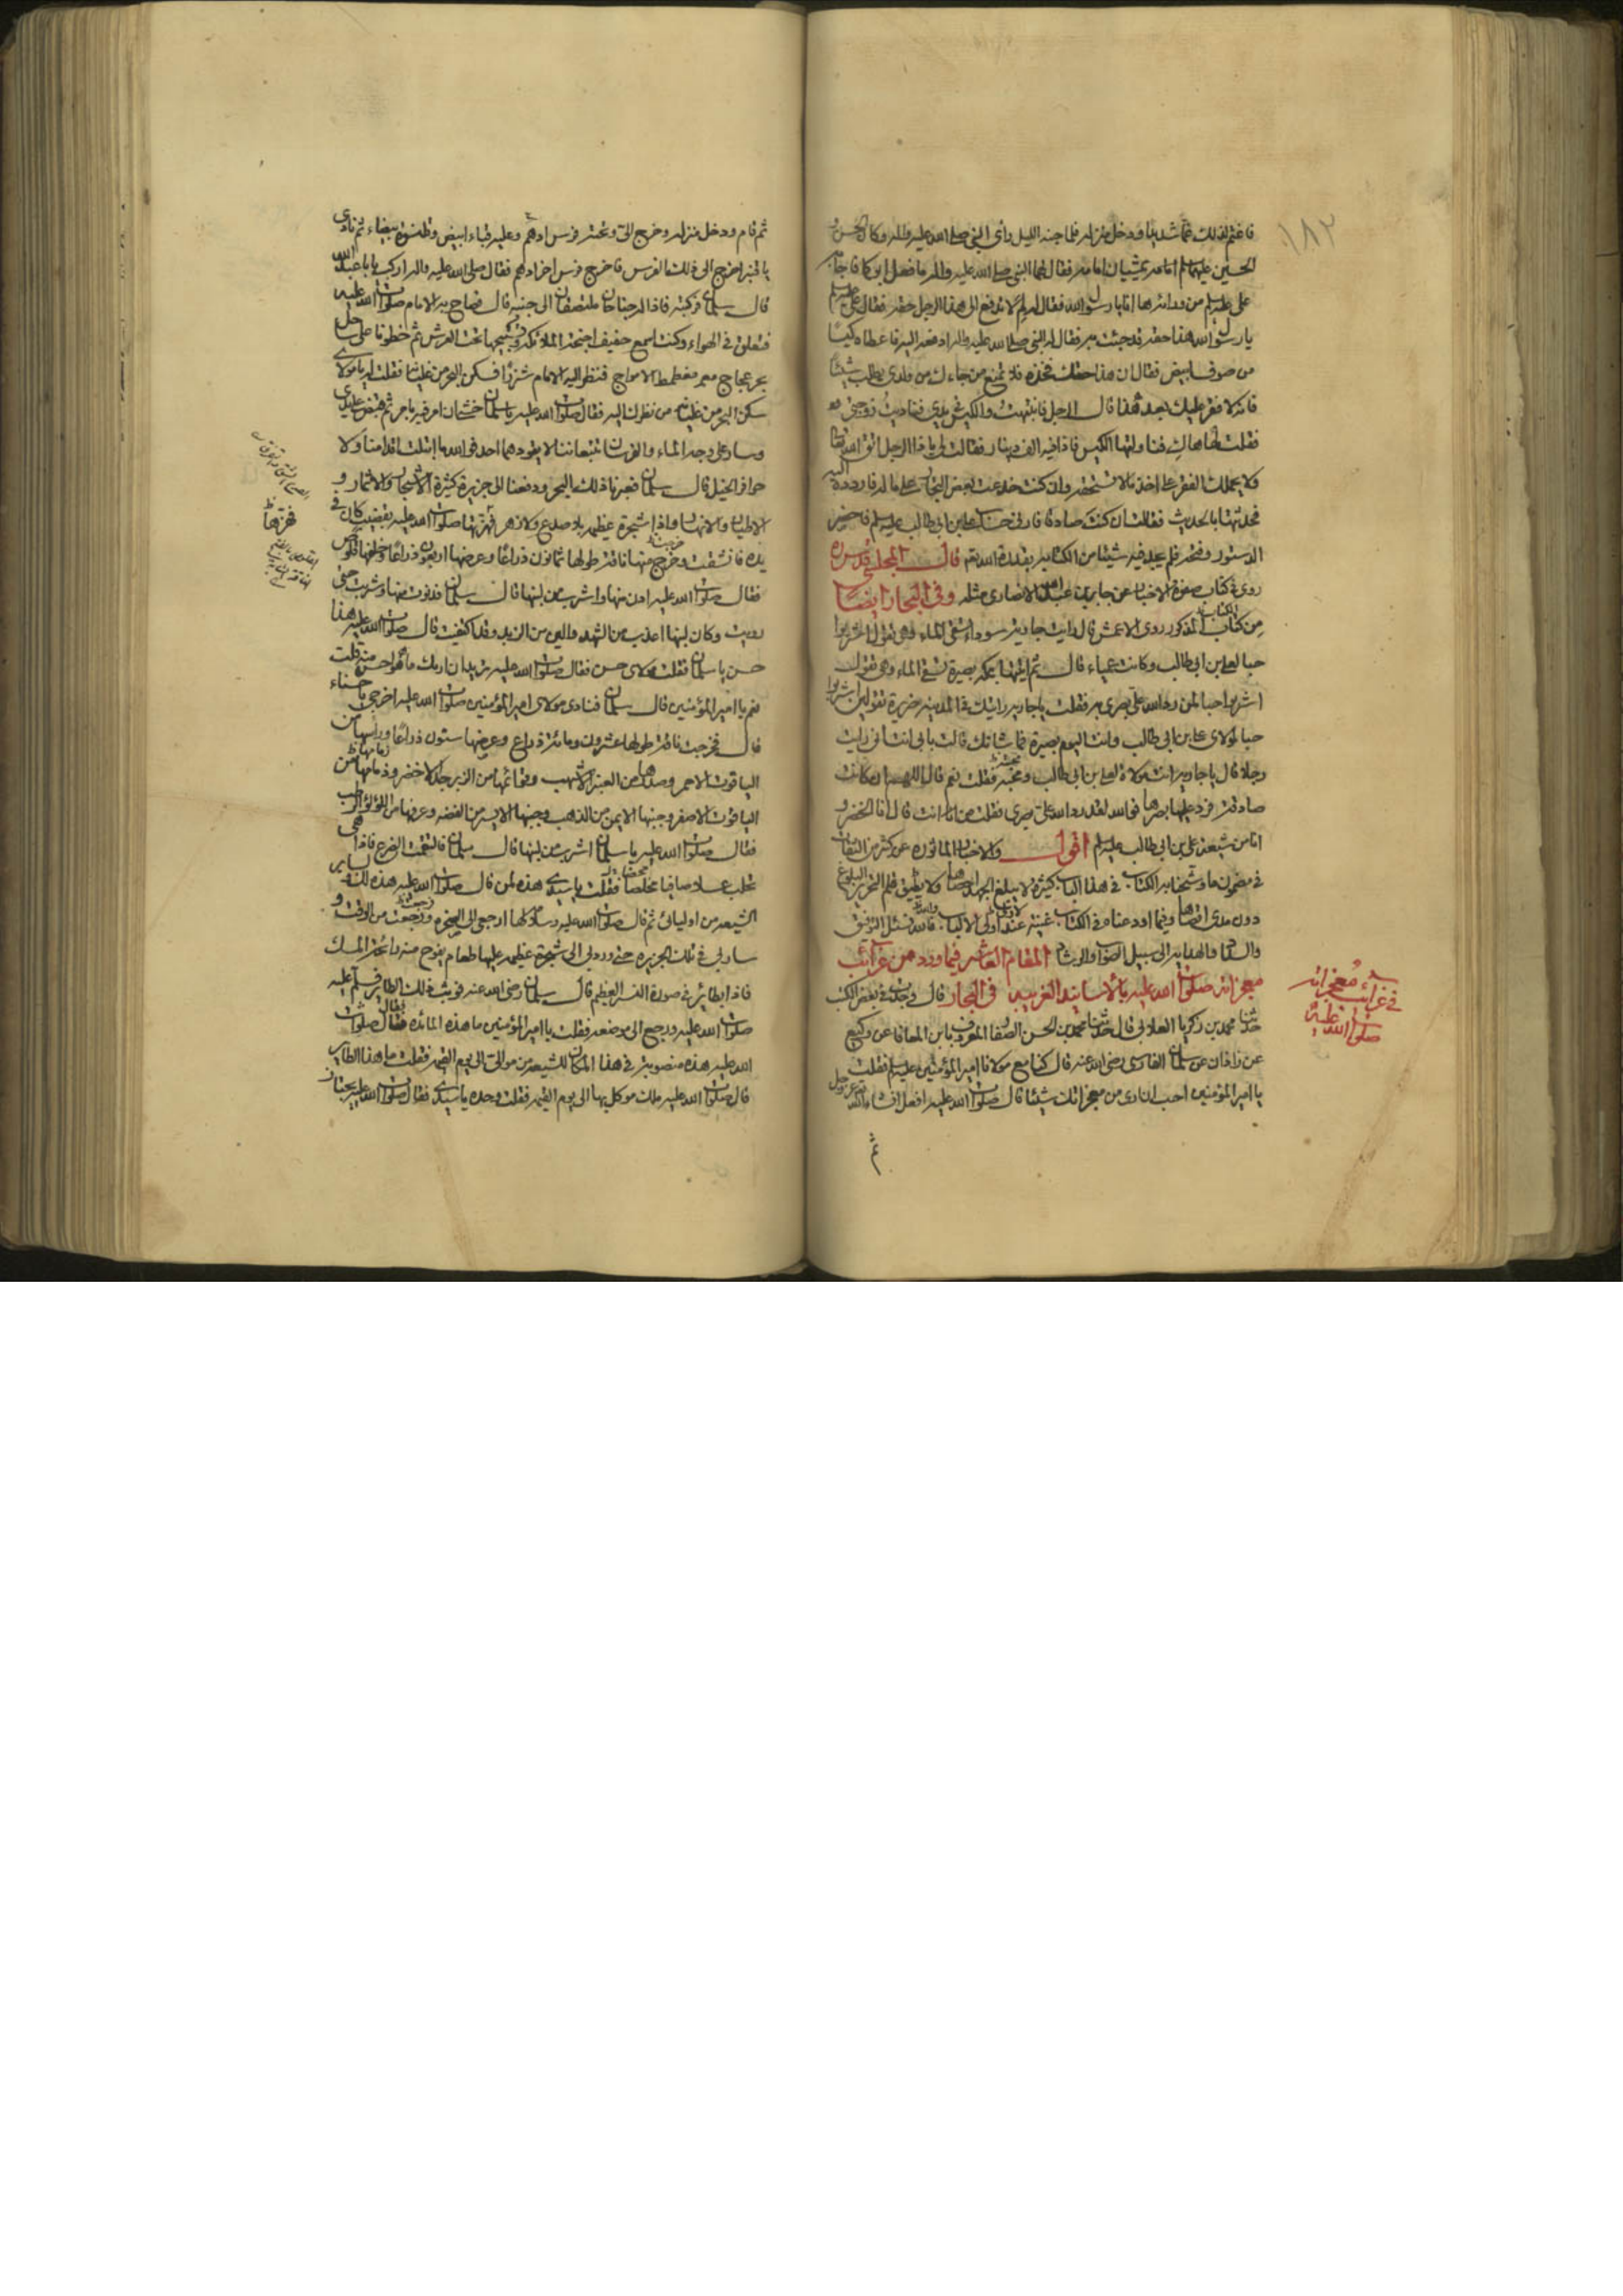 ١٨٢
فاغتم لذلك غما شديدا ودخل منزله فلما جنه الليل رأى النبي صلى الله عليه واله وكان الحسن و
الحسين عليهما السلم امامه يمشيان امامه فقال لهما النبي صلى الله عليه واله ما فعل ابوكما فاجابه
على عليه السلم من ورائه ها انا يا رسول الله فقال له لم لا تدفع الى هذا الرجل حقه فقال على عليه السلم
يا رسول الله هذا حقه قد جئت به فقال له النبي صلى الله عليه واله ادفعه اليه فاعطاه كيسا
من صوف ابيض فقال ان هذا حقك فخذه فلا تمنع من جاءك من ولدي يطلب شيئا
فانه لا فقر عليك بعد هذا قال الرجل فانتبهت والكيس في يدي فناديت زوجتي
فقلت لها هاك فناولتها الكيس فاذا فيه الف دينار فقالت لي يا ذا الرجل اتق الله تعالى
ولا يحملك الفقر على اخذ ما لا تستحقه وان كنت خدعت بعض التجار على ماله فاردده اليه
فحدثتها بالحديث فقالت ان كنت صادقا فارني حساب علي بن ابي طالب عليه السلم فاحضر
الدستور وفتحه فلم يجد فيه شيئا من الكتابه بقدرة الله تع قال المجلسي قدس سره
روى في كتاب صفوة الاخبار عن جابر بن عبد الله الانصاري مثله وفي البحار ايضا
من كتاب المذكور روى الاعمش قال رايت جارية سوداء تسقي الماء وهي تقول اشربوا
حبا لعلي بن ابي طالب وكانت عمياء قال ثم اتيتها بمكة بصيرة تسقي الماء وهي تقول
اشربوا حبا لمن رد الله علي بصري به فقلت يا جارية رايتك في المدينة ضريرة تقولين اشربوا
حبا لمولاي علي بن ابي طالب وانت اليوم بصيرة فما شانك قالت بابي انت اني رايت
رجلا قال يا جارية انت مولاة لعلي بن ابي طالب ومحبته فقلت نعم قال اللهم ان كانت
صادقة فرد عليها بصرها فوالله لقد رد الله علي بصري فقلت من انت قال انا الخضر و
انا من شيعة علي بن ابي طالب عليه السلم اقول والاخبار الماثوره عن كثير من الثقات
في مضمون ما وشحنا به الكتاب في هذا الباب كثيرة لا يبلغ الجهد احصاها ولا يطيق قلم التحرير البلوغ
دون مدى اقصاها وفيما اودعناه في الكتاب غنية عند اولي الالباب فالله نسئل التوفيق
والسداد والهداية الى سبيل الصواب والرشاد المقام العاشر فيما ورد من غرائب
معجزاته صلوات الله عليه بالاسانيد الغريبه في البحار قال وجدت في بعض الكتب
حدثنا محمد بن زكريا العلابي قال حدثنا محمد بن الحسن الصفار المعروف بابن المعافا عن وكيع
عن زاذان عن سلمان الفارسي رضي الله عنه قال كنا مع مولانا امير المؤمنين عليه السلم فقلت
يا امير المؤمنين احب ان ارى من معجزاتك شيئا قال صلوات الله عليه افعل انشاء الله عز وجل
ثم
في غرائب معجزاته
صلوات الله عليه
ثم قام ودخل منزله وخرج الي وتحته فرس ادهم وعليه قباء ابيض وقلنسوة بيضاء ثم نادى
يا قنبر اخرج الي ذلك الفرس فاخرج فرس اخر ادهم فقال صلى الله عليه واله اركب يا با عبد الله
قال سلمان فركبته فاذا له جناحان ملتصقان الى جنبه قال فصاح به الامام صلوات الله عليه
فتعلق في الهواء وكنت اسمع حفيف اجنحة الملائكة وتسبيحها تحت العرش ثم خطونا على ساحل
بحر عجاج مغطمط الامواج فنظر اليه الامام شزرا فسكن البحر من غليانه فقلت له يا مولاي
سكن البحر من غليانه من نظرك اليه فقال صلوات الله عليه يا سلمان خشي ان امر فيه بامر ثم قبض على يدي
وسار على وجه الماء والفرسان تتبعاننا لا يقودهما احد فوالله ما ابتلت اقدامنا ولا
حوافر الخيل قال سلمان فعبرنا ذلك البحر ودفعنا الى جزيرة كثيرة الاشجار والاثمار و
الاطيار والانهار واذا شجرة عظيمه بلا صدع ولا زهر فهزها صلوات الله عليه بقضيب كان في
يده فانشقت وخرج منها ناقة طولها ثمانون ذراعا وعرضها اربعون ذراعا وخلفها قلوص
فقال صلوات الله عليه ادن منها واشرب من لبنها قال سلمان فدنوت منها وشربت حتى
رويت وكان لبنها اعذب من الشهد والين من الزبد وقد اكتفيت قال صلوات الله عليه هذا
حسن يا سلمان فقلت مولاي حسن فقال صلوات الله عليه تريد ان اريك ما هو احسن منه قلت
نعم يا امير المؤمنين قال سلمان فنادى مولاي امير المؤمنين صلوات الله عليه اخرجي يا حسناء
قال فخرجت ناقة طولها عشرون ومائة ذراع وعرضها ستون ذراعا وراسها من
الياقوت الاحمر وصدرها من العنبر الاشهب وقوائمها من الزبرجد الاخضر وزمامها من
الياقوت الاصفر وجنبها الايمن من الذهب وجنبها الايسر من الفضه وعرضها من اللؤلؤ الرطب
فقال صلوات الله عليه يا سلمان اشرب من لبنها قال سلمان فالتقمت الضرع فاذا هي
تحلب عسلا صافيا مخلصا فقلت يا سيدي هذه لمن قال صلوات الله عليه هذه لك ولسائر
الشيعه من اوليائي ثم قال صلوات الله عليه وسلامه لها ارجعي الى الصخره ورجعت من الوقت و
سار بي في تلك الجزيره حتى ورد بي الى شجرة عظيمه عليها طعام يفوح منه رائحة المسك
فاذا بطائر في صورة النسر العظيم قال سلمان رضي الله عنه فوثب ذلك الطاير فسلم عليه
صلوات الله عليه ورجع الى موضعه فقلت يا امير المؤمنين ما هذه المائده فقال صلوات
الله عليه هذه منصوبة في هذا المكان للشيعه من موالي الى يوم القيمه فقلت ما هذا الطاير
قال صلوات الله عليه ملك موكل بها الى يوم القيمه فقلت وحده يا سيدي فقال صلوات الله عليه يجتاز
فهزها